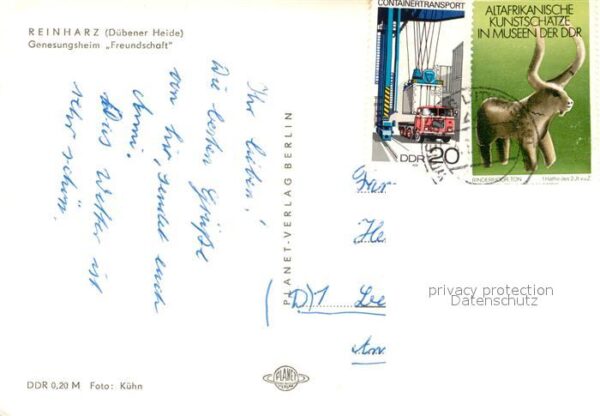 REINHARZ (Dübener Heide)
Genesungsheim „Freundschaft"
Ihr Lieben!
Die besten Grüße
von hier, sendet euch
Das Wetter ist
sehr schön.
PLANET-VERLAG BERLIN
CONTAINERTRANSPORT
DDR 20
ALTAFRIKANISCHE
KUNSTSCHÄTZE
IN MUSEEN DER DDR
RINDERSKULPTUR, TON
1. Hälfte des 2. Jt. v. u. Z.
He
privacy protection
Datenschutz
DDR 0,20 M Foto: Kühn
PLANET